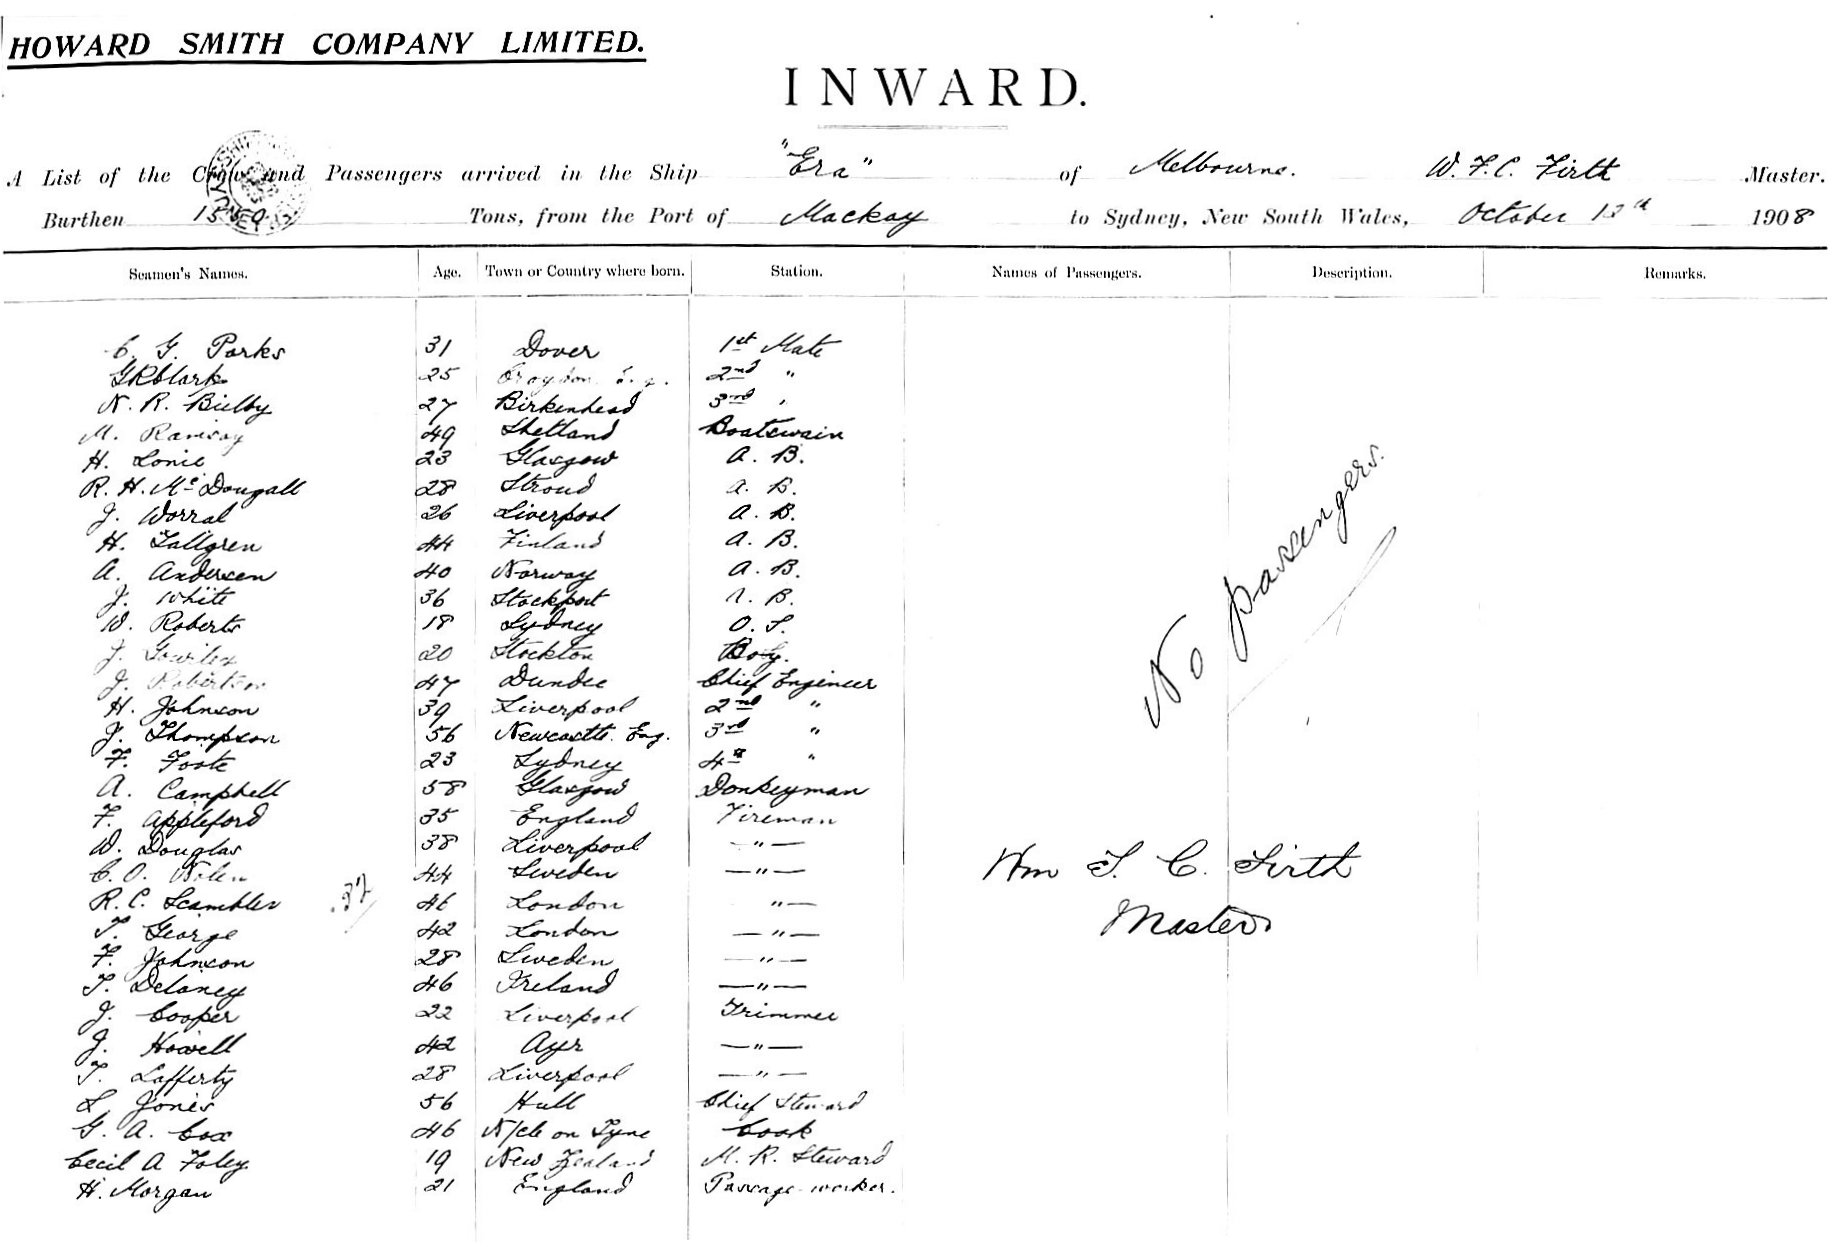 HOWARD SMITH COMPANY LIMITED.
INWARD.
A List of the Crew and Passengers arrived in the Ship "Era" of Melbourne. W. F. C. Firth Master.
Burthen Tons, from the Port of Mackay to Sydney, New South Wales, October 1908
Seamen's Names. Age. Town or Country where born. Station. Names of Passengers. Description. Remarks.
C. G. Parks 31 Dover 1st Mate
G R Clark 25 Croydon Eng. 2nd "
N. R. Bielby 27 Birkenhead 3rd "
M. Ramsay 49 Shetland Boatswain
H. Lonie 23 Glasgow A. B.
R. H. McDougall 28 Stroud A. B.
J. Worral 26 Liverpool A. B.
H. Tallgren 44 Finland A. B.
A. Andersen 40 Norway A. B.
J. White 36 Stockport A. B.
W. Roberts 18 Sydney O. S.
J. 20 Stockton Boy.
J. Robertson 47 Dundee Chief Engineer
H. Johnson 39 Liverpool 2nd "
J. Thompson 56 Newcastle. Eng. 3rd "
F. Foote 23 Sydney 4th "
A. Campbell 58 Glasgow Donkeyman
F. Appleford 35 England Fireman
W. Douglas 38 Liverpool — " —
C. O. 44 Sweden — " —
R. C. Scambler 46 London " —
T. George 42 London — " —
F. Johnson 28 Sweden — " —
T. Delaney 46 Ireland — " —
J. Cooper 22 Liverpool Trimmer
J. Howell 42 Ayr — " —
T. Lafferty 28 Liverpool — " —
L Jones 56 Hull Chief Steward
G. A. Cox 46 N/cle on Tyne Cook
Cecil A Foley 19 New Zealand M. R. Steward
H. Morgan 21 England Passage-worker.
No passengers.
32
Wm F. C. Firth
Master